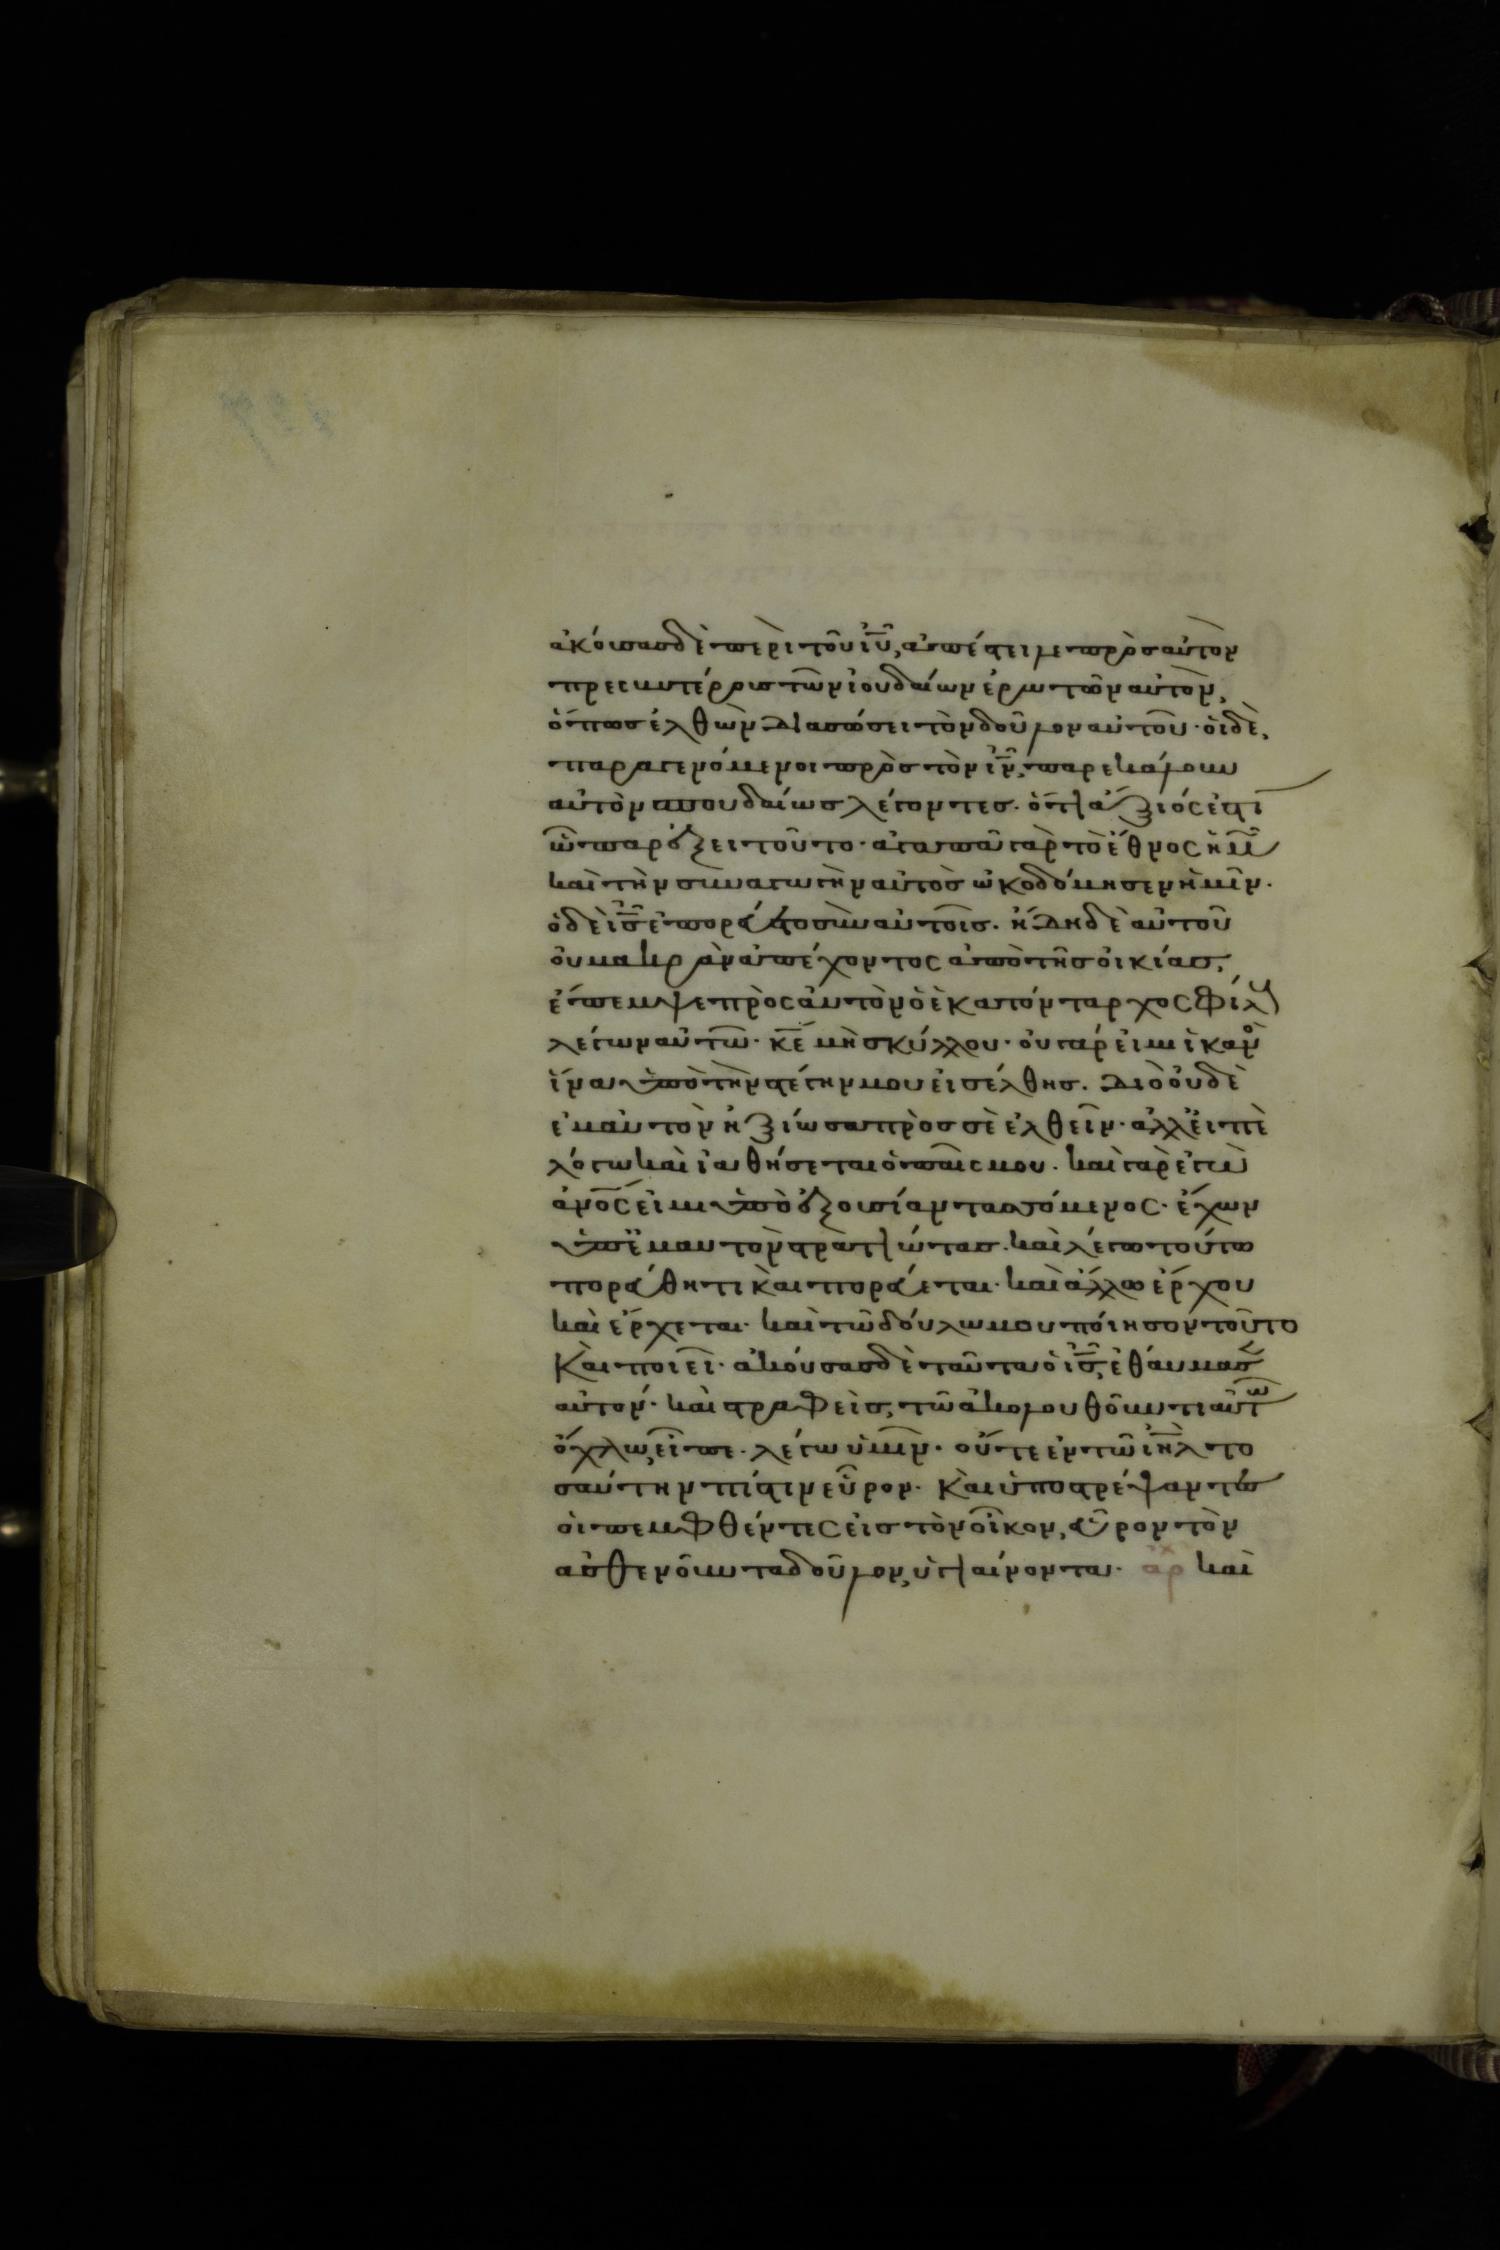 ἀκούσας δὲ περὶ τοῦ ἰῦ, ἀπέστειλε πρὸς αὐτὸν
πρεσβυτέρους τῶν ἰουδαίων ἐρωτῶν αὐτὸν,
ὅπως ἐλθὼν διασώσει τὸν δοῦλον αὐτοῦ· οἱ δὲ,
παραγενόμενοι πρὸς τὸν ἰν, παρεκάλουν
αὐτὸν σπουδαίως λέγοντες· ὅτι ἄξιός ἐστι
ᾧ παρέξει τοῦτο· ἀγαπᾶ γὰρ τὸ ἔθνος ἡμ
καὶ τὴν συναγωγὴν αὐτὸς ὠκοδόμησεν ἡμῖν·
ὁ δὲ ἰς ἐπορεύετο σὺν αὐτοῖς· ἤδη δὲ αὐτοῦ
οὐ μακρὰν ἀπέχοντος ἀπὸ τῆς οἰκίας,
ἔπεμψε πρὸς αὐτὸν ὁ ἑκατόνταρχος φίλους
λέγων αὐτῶ· κε μὴ σκύλλου· οὐ γάρ εἰμι ἱκανὸ
ἵνα ὑπὸ τὴν στέγην μου εἰσέλθης· διὸ οὐδὲ
ἐμαυτὸν ἠξίωσα πρὸς σὲ ἐλθεῖν· ἀλλ' εἰπὲ
λόγω καὶ ἰαθήσεται ὁ παῖς μου· καὶ γὰρ ἐγὼ
ἀνός εἰμι ὑπὸ ἐξουσίαν τασσόμενος· ἔχων
ὑπ' ἐμαυτὸν στρατιώτας· καὶ λέγω τούτω
πορεύθητι καὶ πορεύεται· καὶ ἄλλω ἔρχου
καὶ ἔρχεται· καὶ τῶ δούλω μου ποίησον τοῦτο
καὶ ποιεῖ· ἀκούσας δὲ ταῦτα ὁ ἰς, ἐθαύμασε
αὐτόν· καὶ στραφεὶς, τῶ ἀκολουθοῦντι αὐτῶ
ὄχλω, εἶπε· λέγω ὑμῖν· οὔτε ἐν τῶ ἰηλ το
σαύτην πίστιν εὗρον· καὶ ὑποστρέψαντες
οἱ πεμφθέντες εἰς τὸν οἶκον, εὗρον τὸν
ἀσθενοῦντα δοῦλον, ὑγιαίνοντα· ἀρχ καὶ